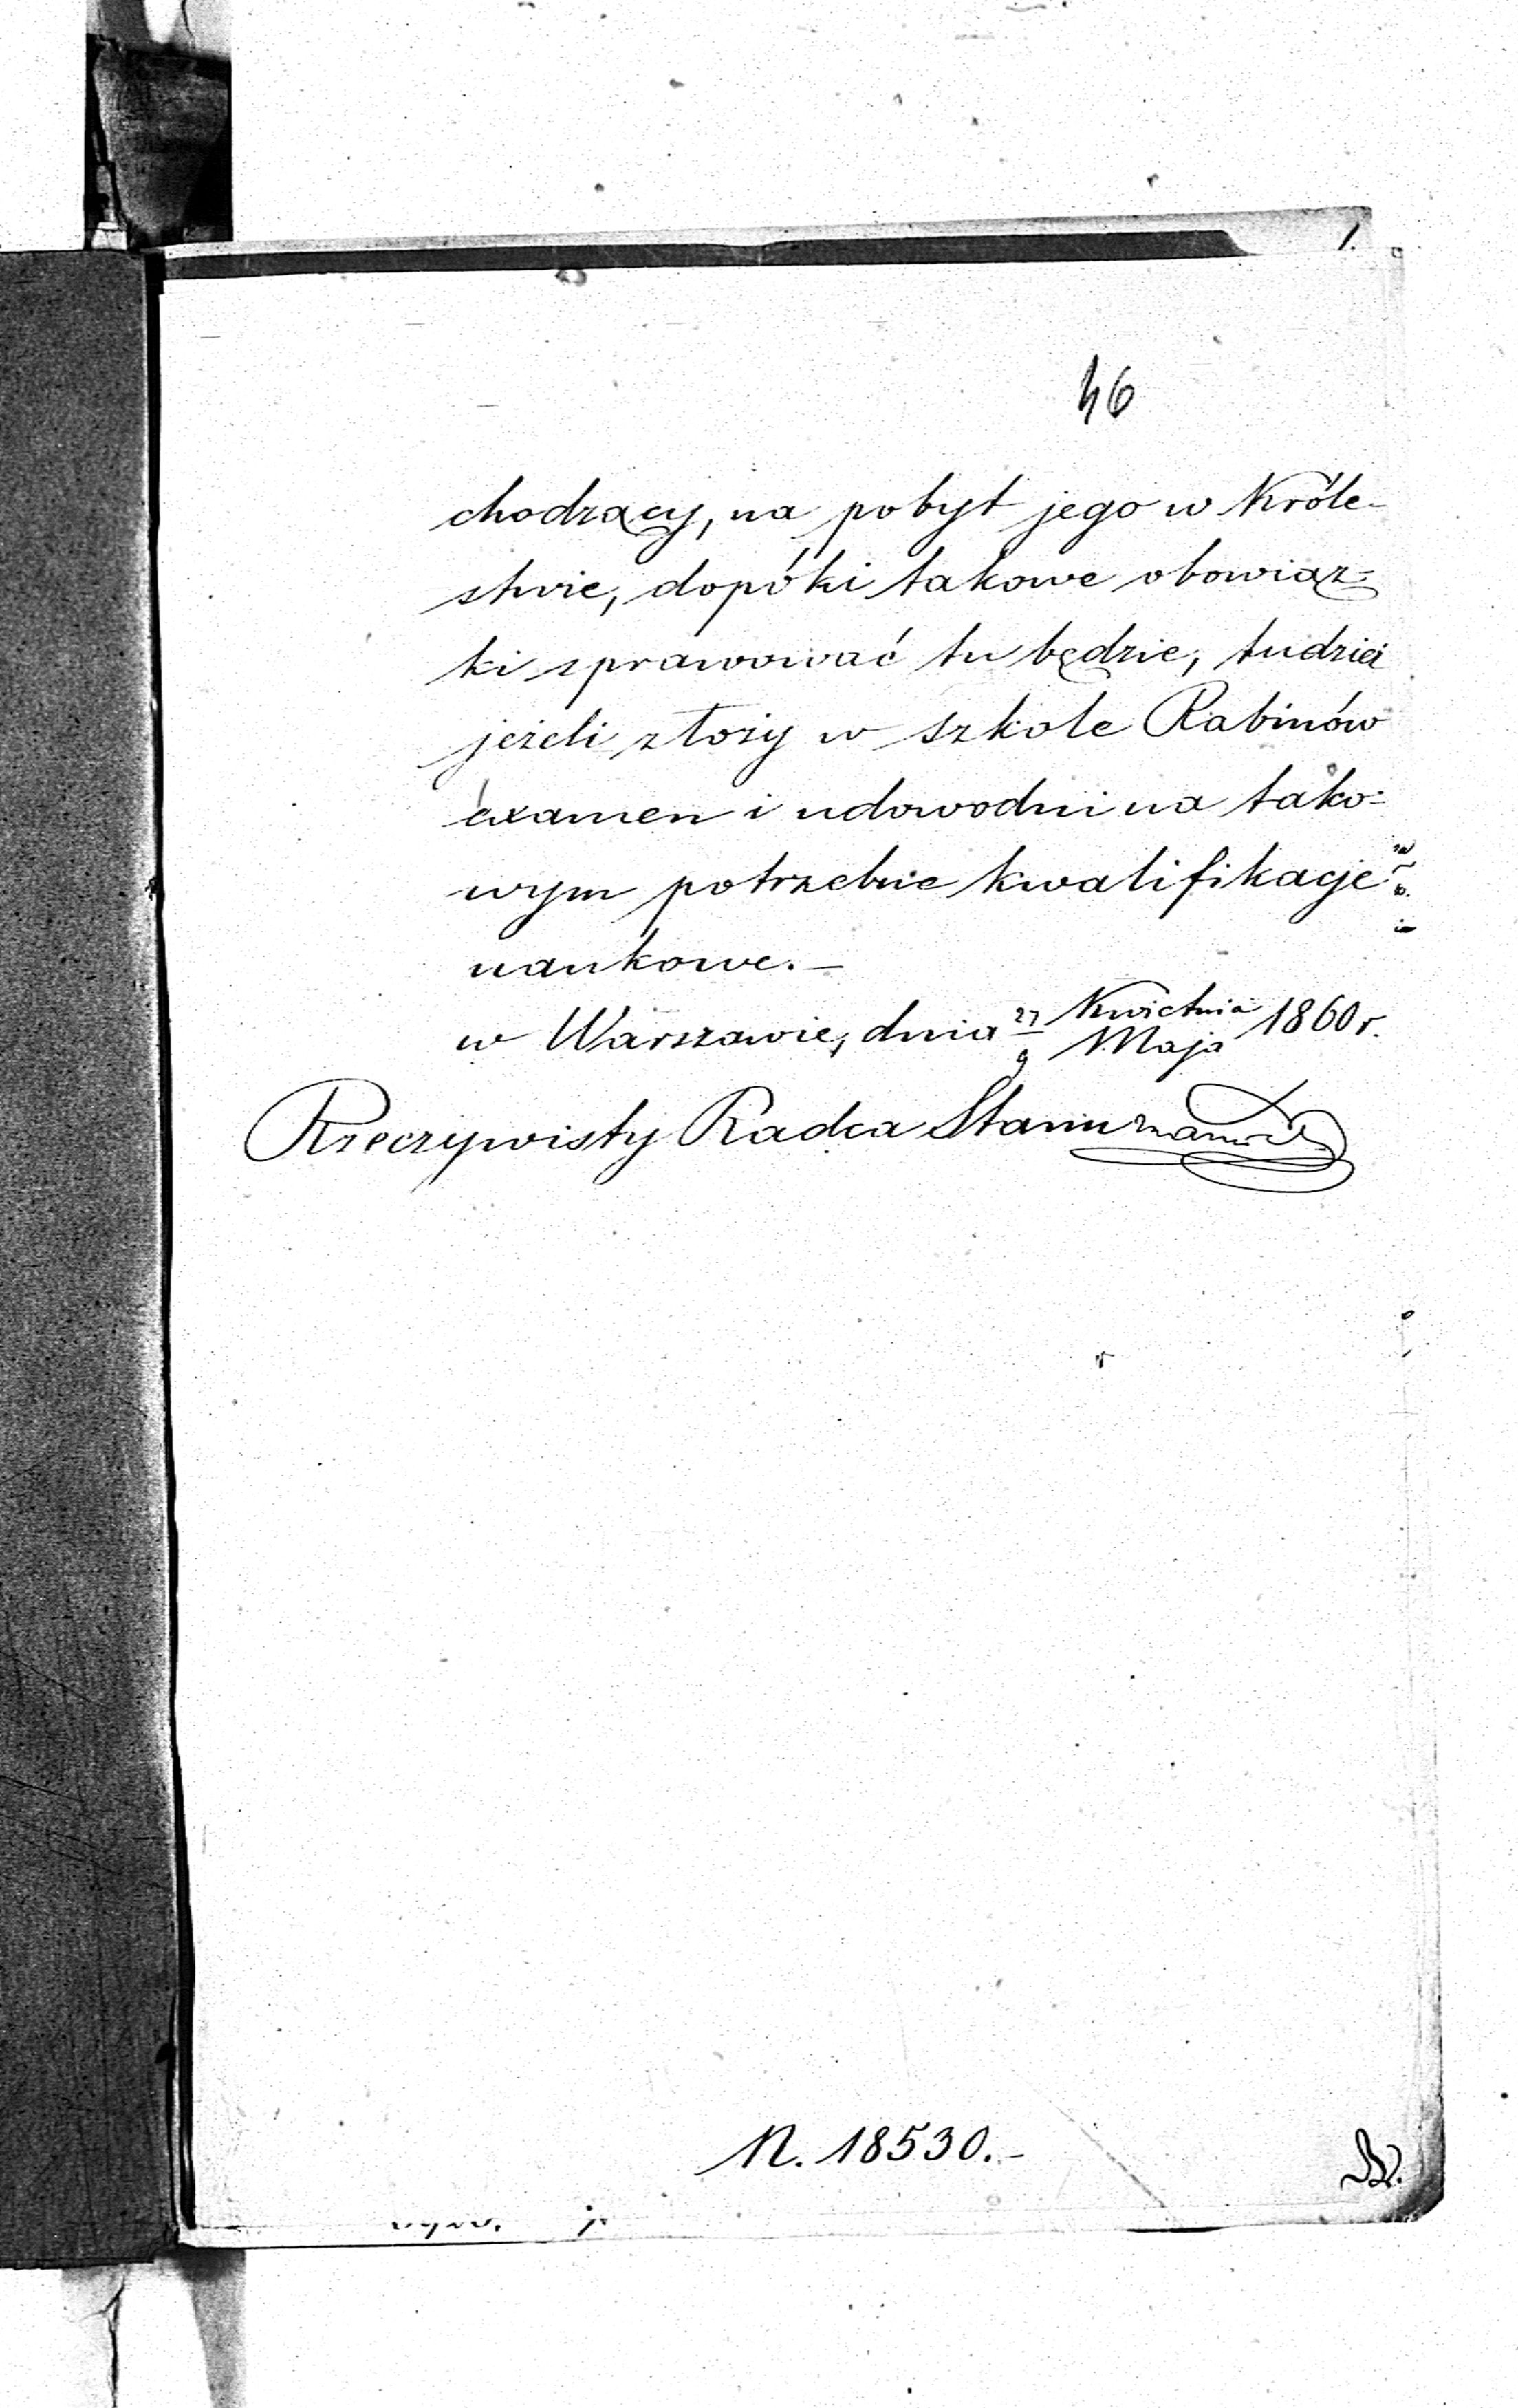 46
chodzący, na pobyt jego w Króle-
stwie, dopóki takowe obowiąz=
ki sprawować tu będzie, tudzież
jeżeli złoży w szkole Rabinów
examen i udowodni na tako=
wym potrzebne kwalifikacje
naukowe.—
w Warszawie, dnia 27/9 Kwietnia/Maja 1860 r.
Rzeczywisty Radca Stanu
N. 18530.-